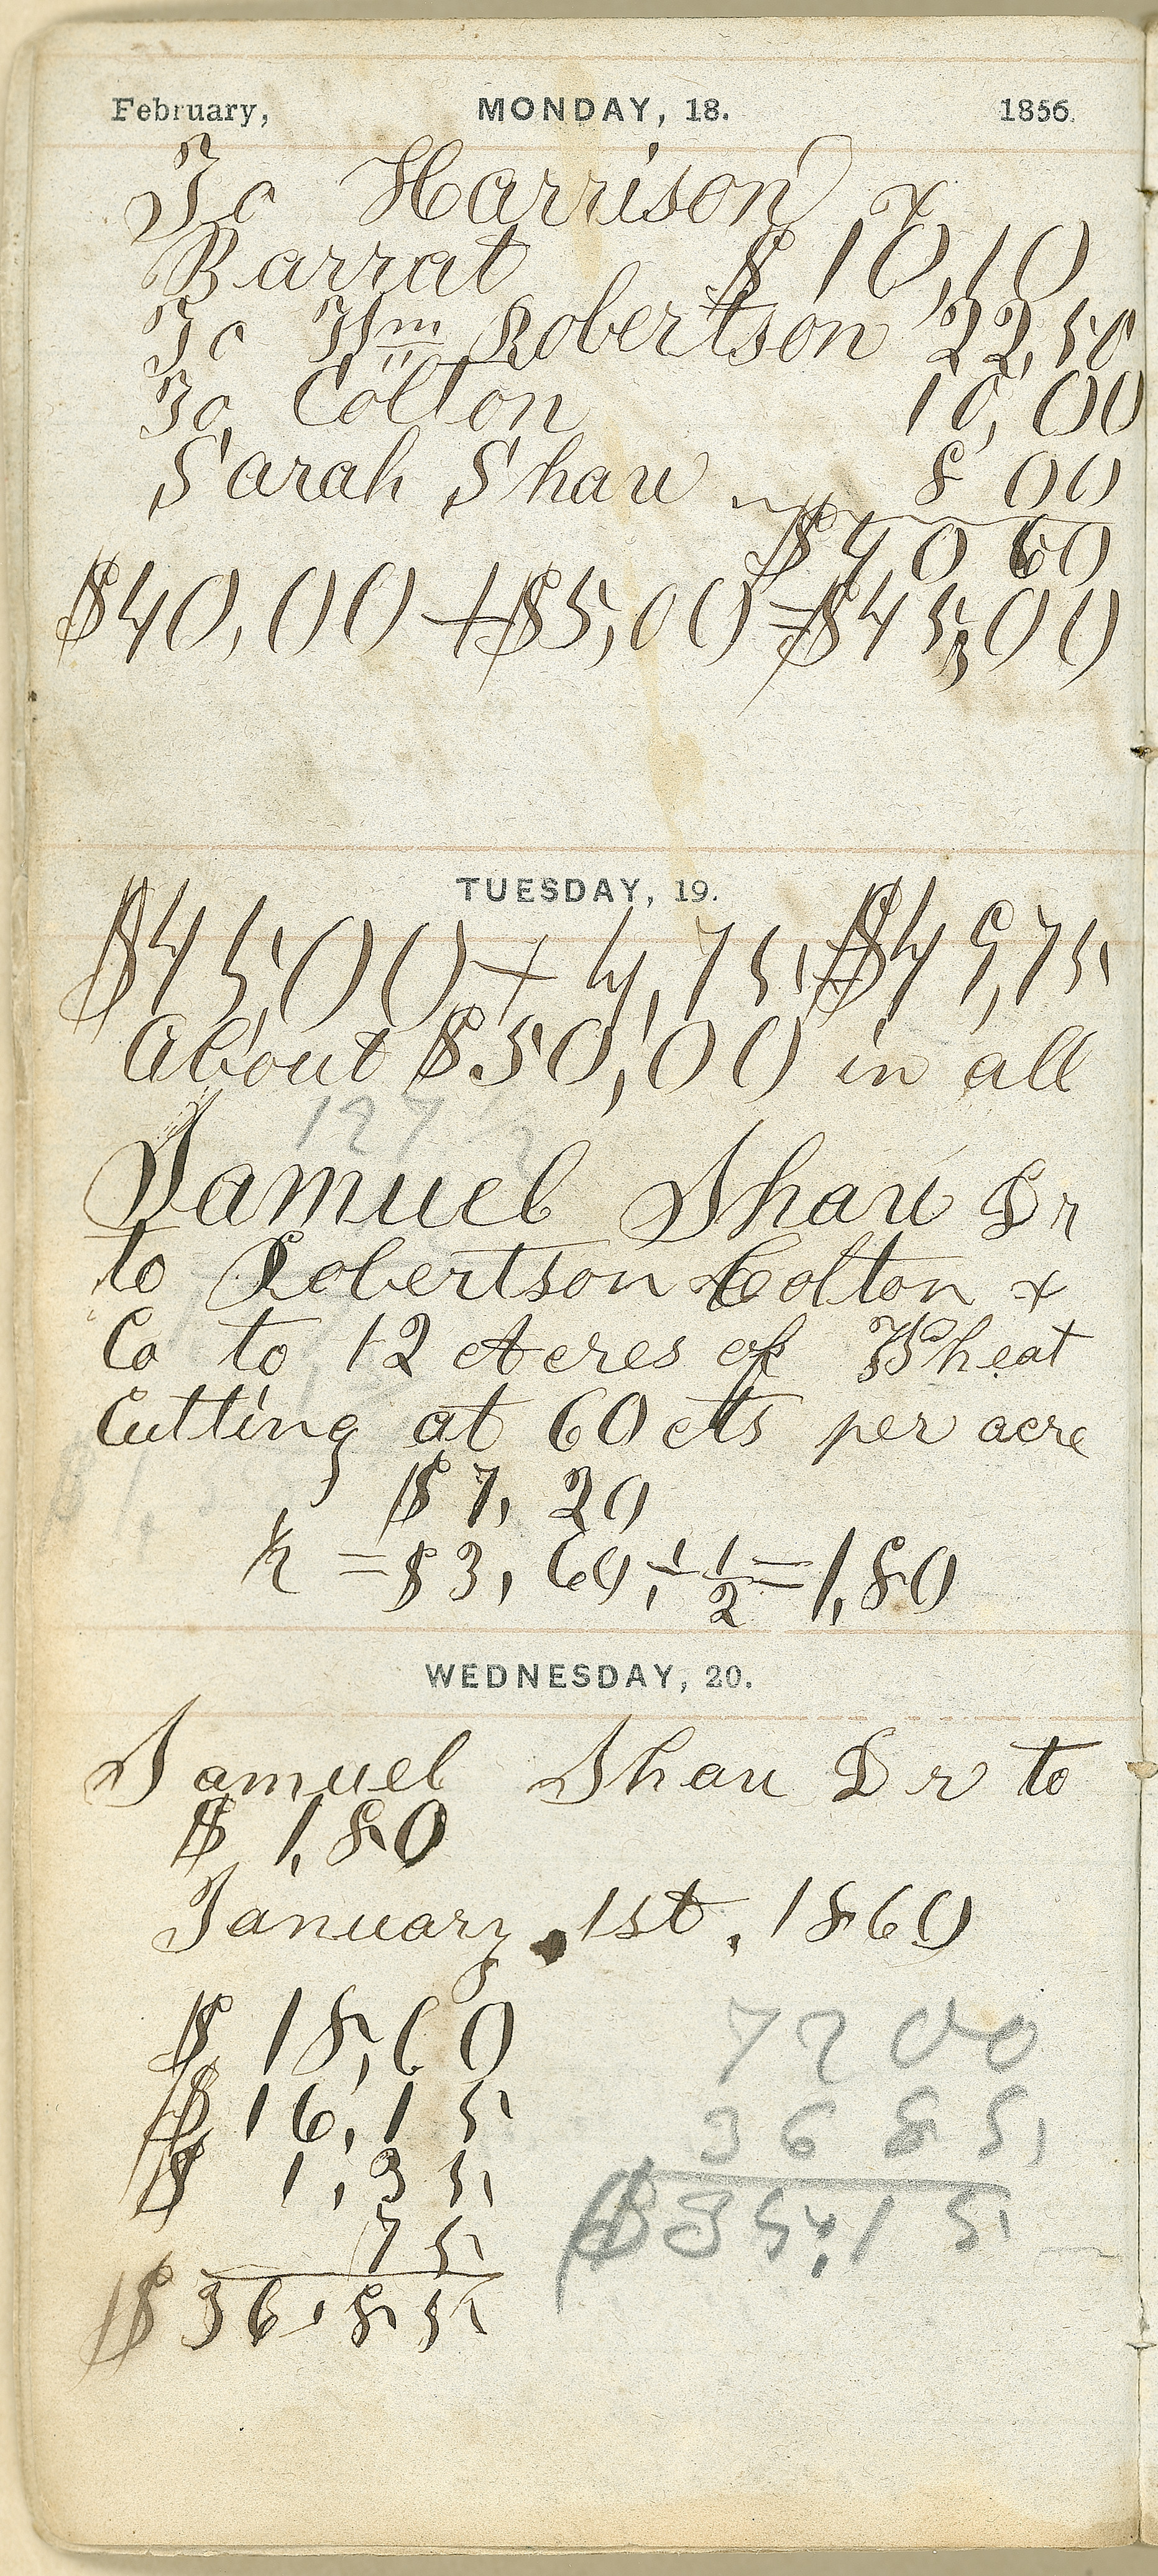 February, MONDAY, 18. 1856.
To Harrison &
Barrat $ 10,10
To Wm Robertson 22,50
To Colton 10,00
Sarah Shaw 8 00
$40 60
$40,00+$5,00=$45,00
TUESDAY, 19.
$45,00+4,75=$49,75
About $50,00 in all
127
Samuel Shaw Dr
to Robertson Colton &
Co to 12 Acres of Wheat
Cutting at 60 cts per acre
$7, 20
½ =$3, 60÷1/2=1,80
WEDNESDAY, 20.
Samuel Shaw Dr to
$ 1,80
January, 1st, 1860
$ 18,60
$ 16,15
$ 1,35
75
$ 36,85
72 00
36 85
$35,15